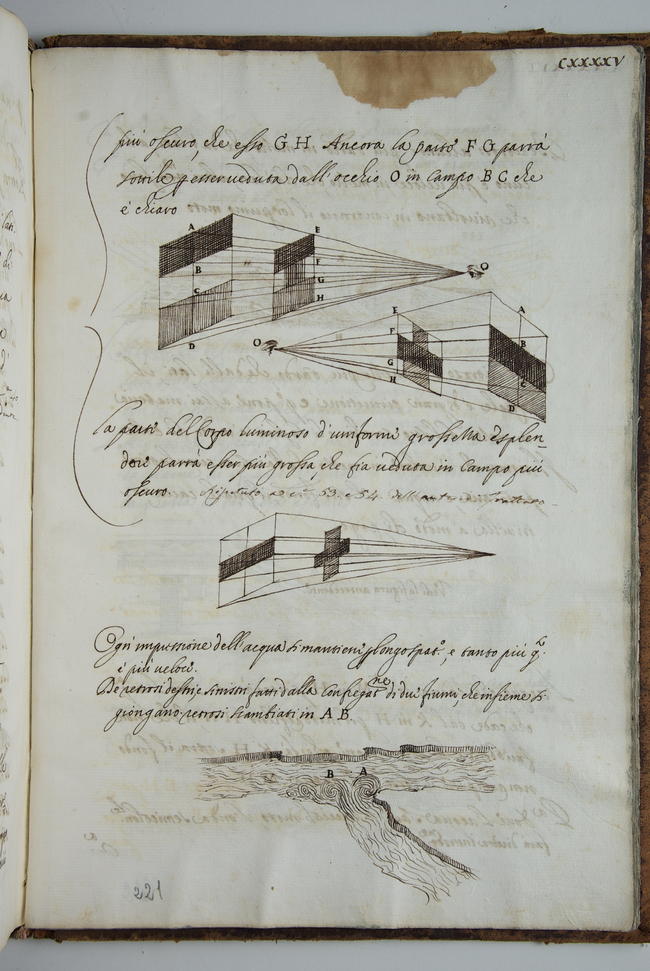 CXXXXV
più oscuro, che esso G H Ancora la parte F G parrà
sottile p esser veduta dall'occhio O in campo B C che
è chiaro
A
B
C
D
E
F
G
H
O
O
E
F
G
H
A
B
C
D
La parte del Corpo luminoso d'uniforme grossezza e splen-
dore parrà esser più grossa, che fia veduta in campo più
oscuro. 53. e 54. dell'
Ogni impressione dell'acqua si mantiene p longo spat.º, e tanto più q.º
è più veloce.
De retrosi destri e sinistri fatti dalla di dui fiumi, che insieme si
giongano retrosi scambiati in A B.
B A
221